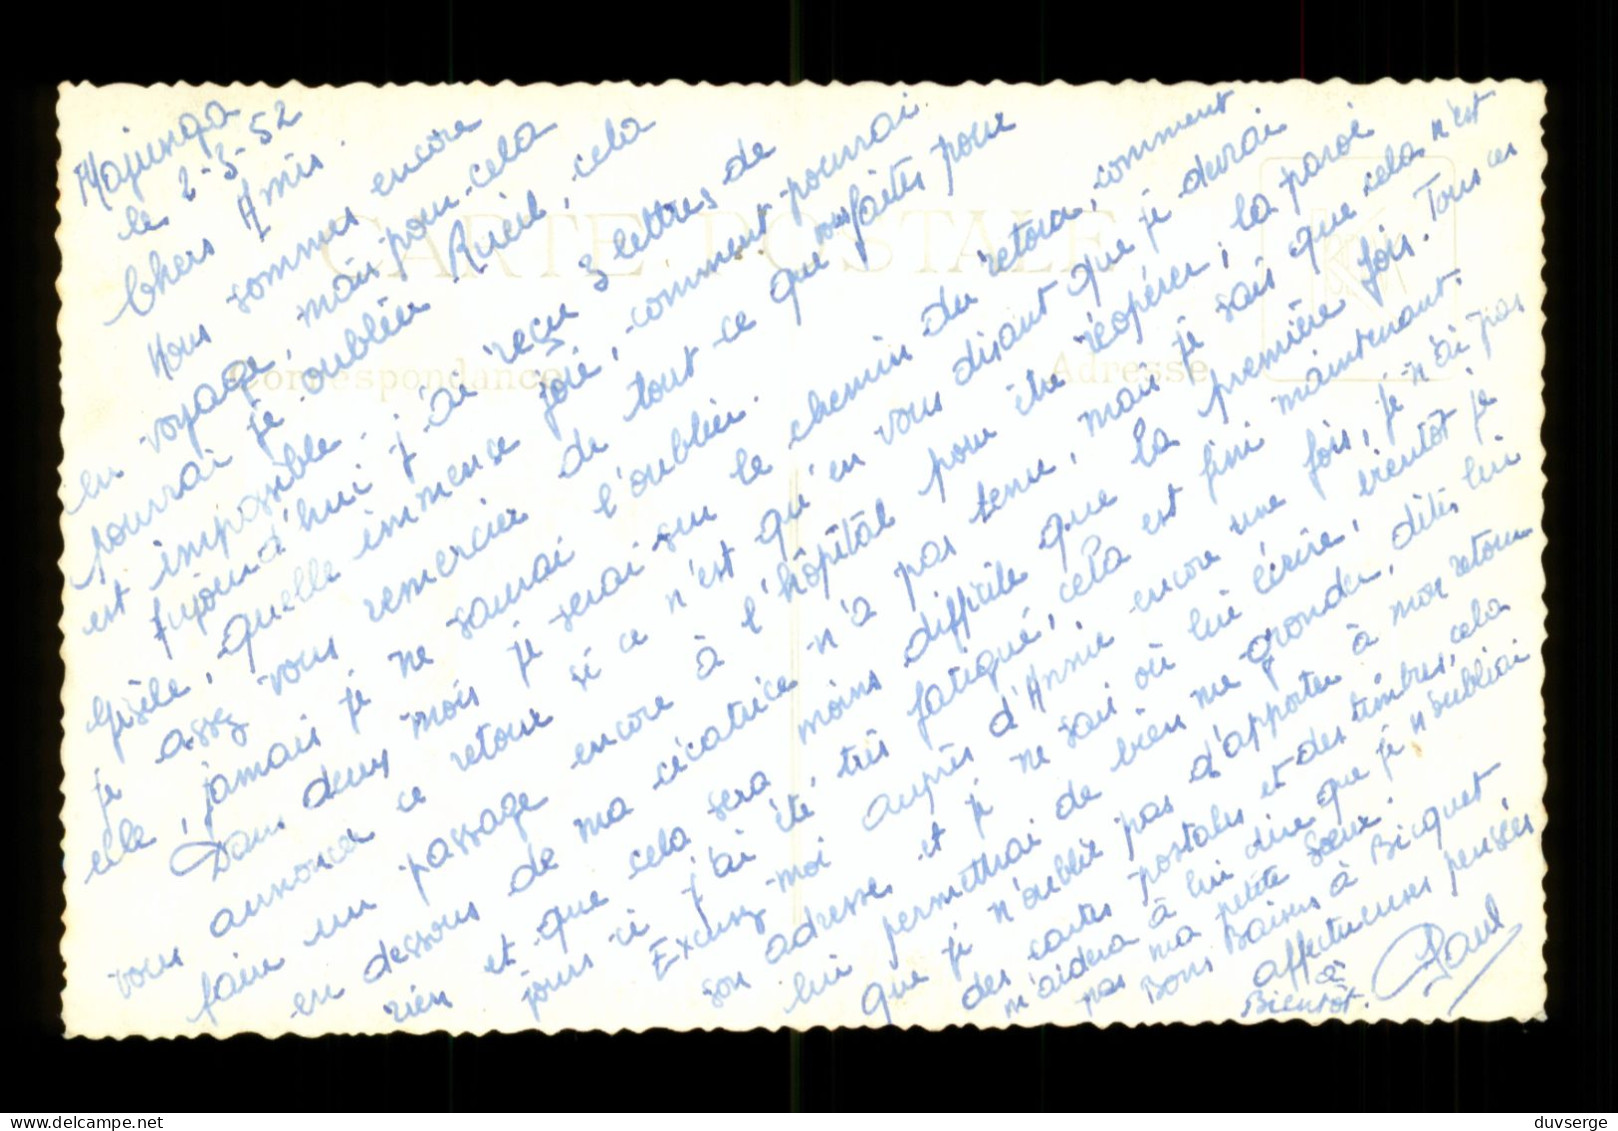 Majunga
le 2-3-52
Chers Amis.
Nous sommes encore
en voyage, mais pour cela
pourrai je oublier Rueil, cela
est impossible. j'ai reçu 3 lettres de
fujourd'hui
Gisèle, quelle immense joie, comment pourrai
je assez vous remercier de tout ce que vous faites pour
elle, jamais je ne saurai l'oublier.
Dans deux mois je serai sur le chemin du retour, comment
vous annoncer ce retour si ce n'est qu'en vous disant que je devrai
faire un passage encore à l'hôpital pour être réopérer, la paroi
en dessous de ma cicatrice n'a pas tenu, mais je sais que cela n'est
rien et que cela sera moins difficile que la première fois. Tous ces
jours ci j'ai été très fatigué, cela est fini maintenant.
Excusez-moi auprès d'Annie encore une fois, je n'ai pas
son adresse et je ne sais où lui écrire, bientôt je
lui permettrai de bien me gronder, dites lui
que je n'oublie pas d'apporter à mon retour
des cartes postales et des timbres, cela
m'aidera à lui dire que je n'oubliai
pas ma petite soeur.
Bons Baisers à Bicquet
affectueuses pensées
à
Bientôt.
Paul
CARTE POSTALE
Correspondance
Adresse
delcampe.net
duvserge